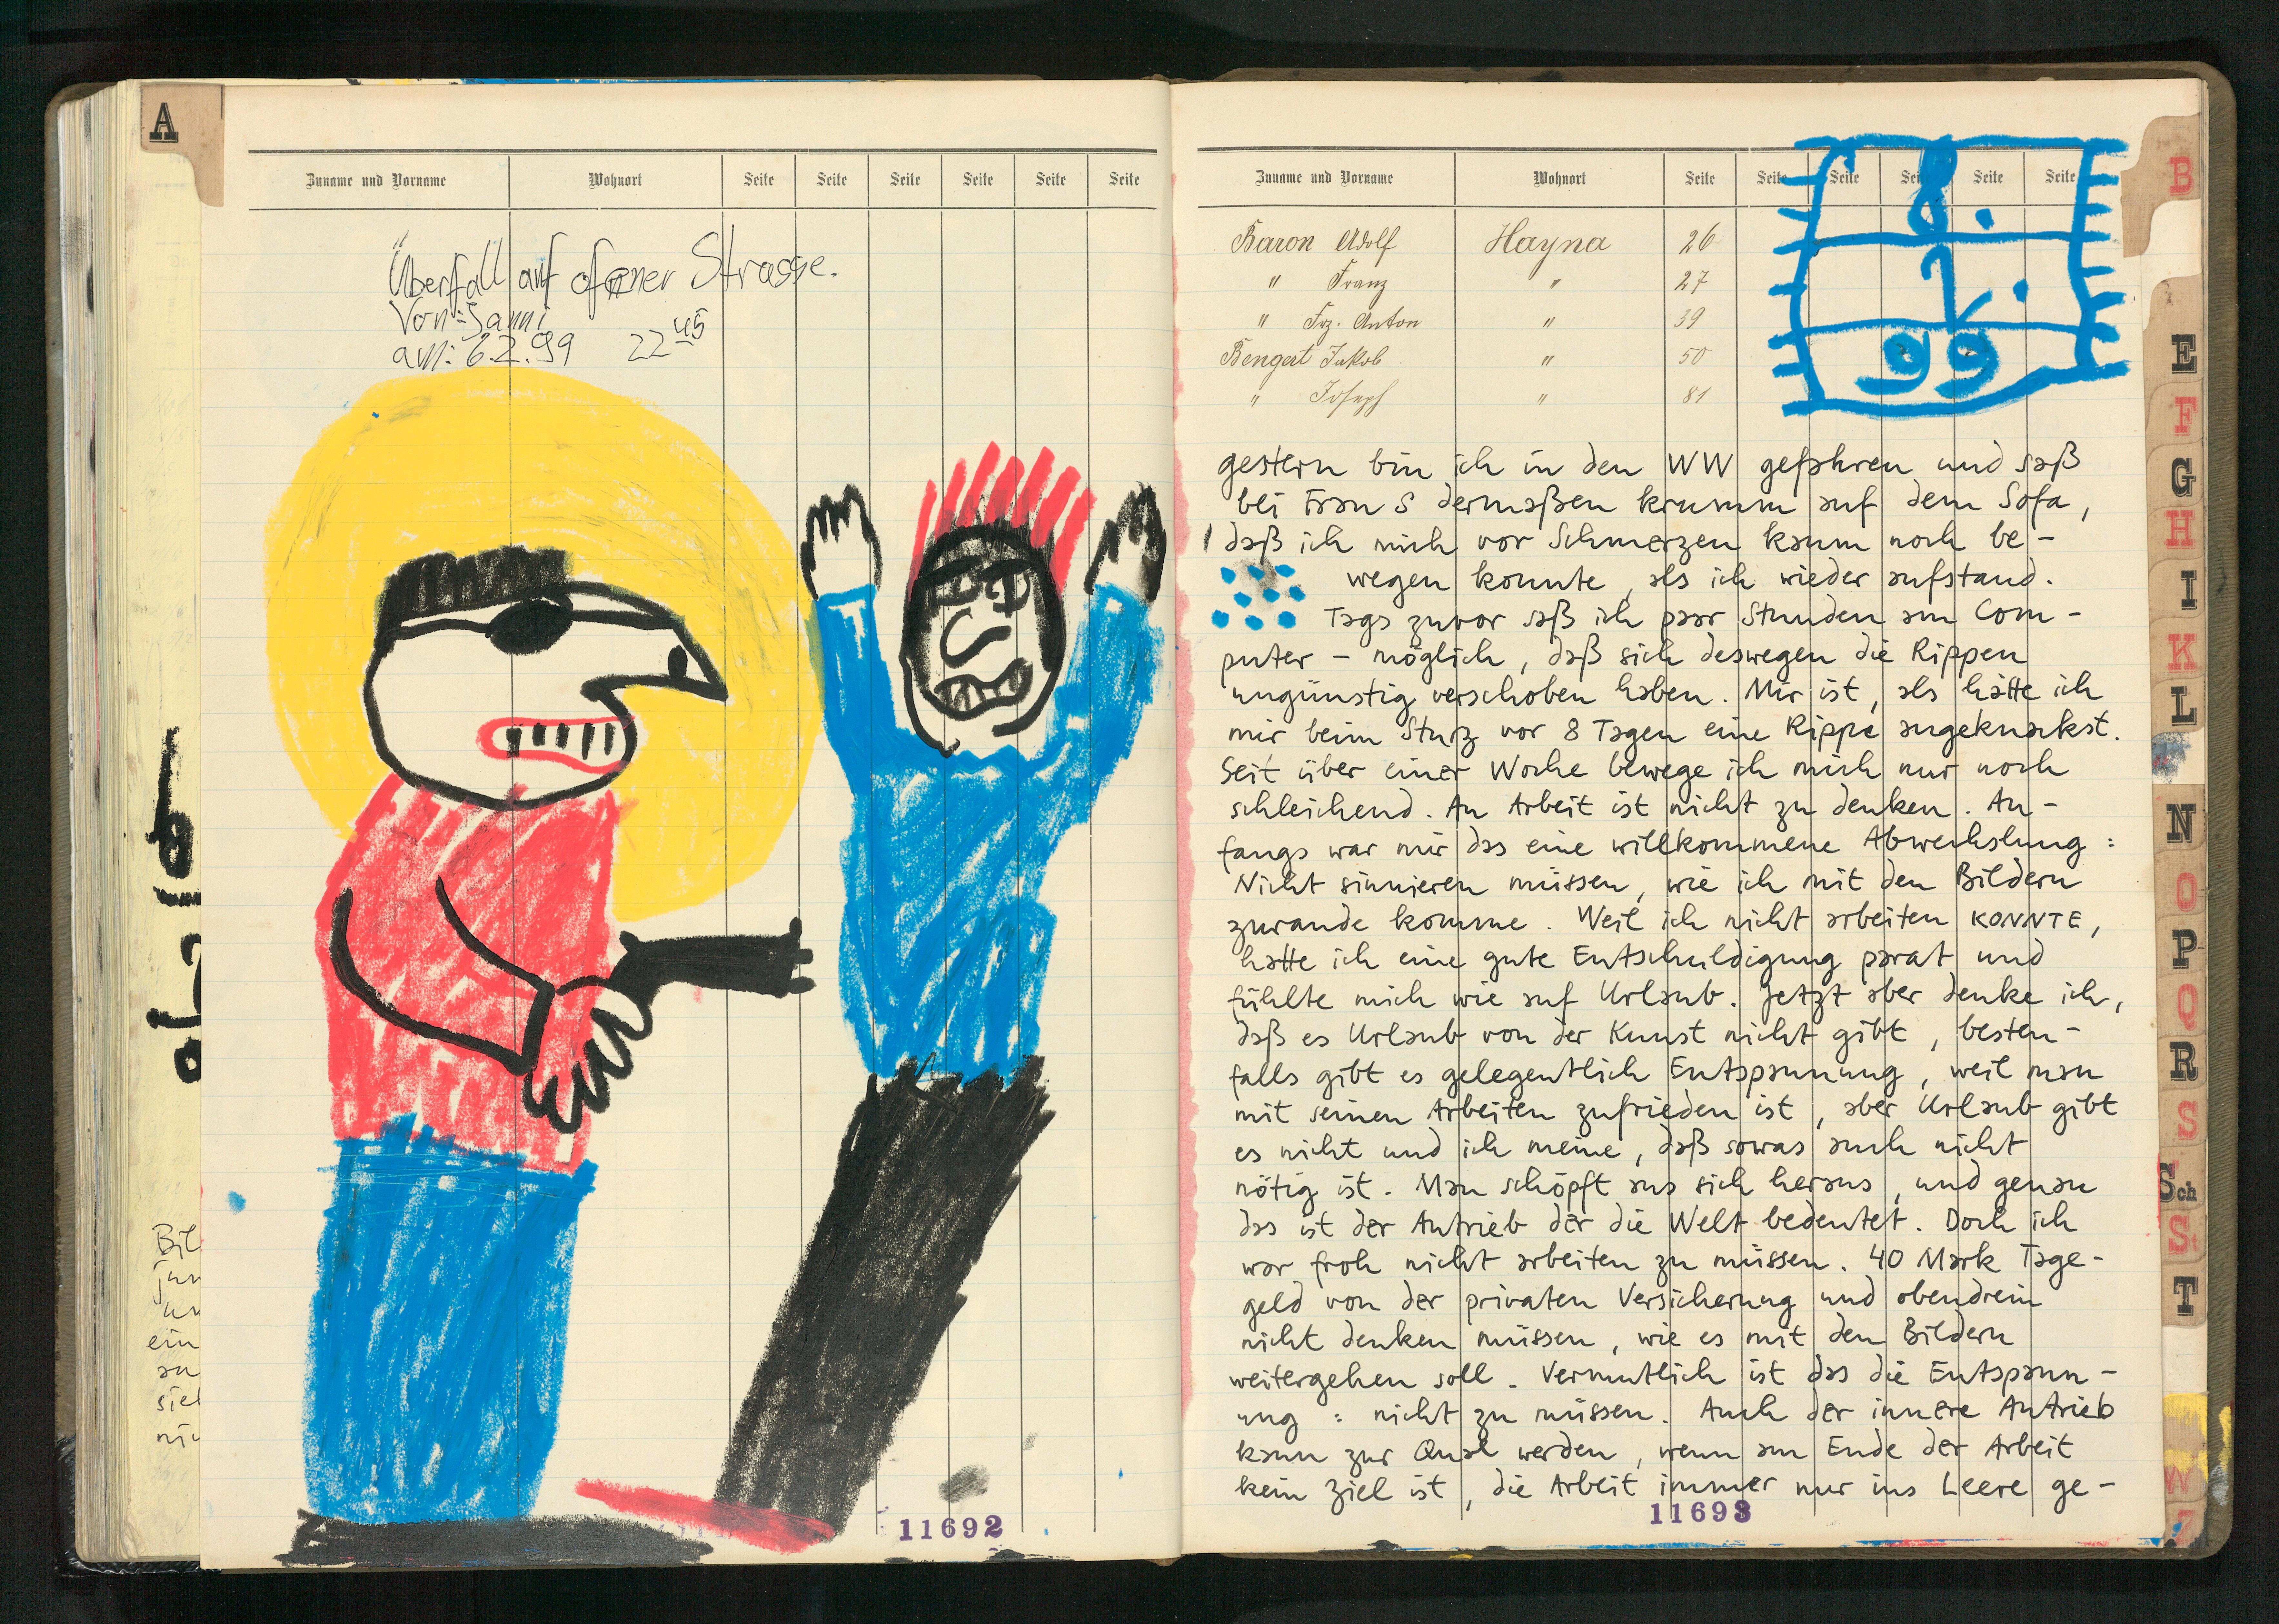 A
Zuname und Vorname Wohnort Seite Seite Seite Seite Seite Seite
Überfall auf ofener Strasse.
Von: Janni
am: 6.2.99 22 45
Bil
jun
un
ein
an
sie
nic
11692
Zuname und Vorname Wohnort Seite Seite Seite Seite Seite Seite
8.
2.
99
Baron Adolf Hayna 26
" Franz " 27
" Frz. Anton " 39
Bengert Jakob " 50
" Joseph " 81
gestern bin ich in den WW gefahren und saß
bei Frau S dermaßen krumm auf dem Sofa,
daß ich mich vor Schmerzen kaum noch be-
wegen konnte, als ich wieder aufstand.
Tags zuvor saß ich paar Stunden am Com-
puter - möglich, daß sich deswegen die Rippen
ungünstig verschoben haben. Mir ist, als hätte ich
mir beim Sturz vor 8 Tagen eine Rippe angeknackst.
Seit über einer Woche bewege ich mich nur noch
schleichend. An Arbeit ist nicht zu denken. An-
fangs war mir das eine willkommene Abwechslung:
Nicht sinnieren müssen, wie ich mit den Bildern
zurande komme. Weil ich nicht arbeiten KONNTE,
hatte ich eine gute Entschuldigung parat und
fühlte mich wie auf Urlaub. Jetzt aber denke ich,
daß es Urlaub von der Kunst nicht gibt, besten-
falls gibt es gelegentlich Entspannung, weil man
mit seinen Arbeiten zufrieden ist, aber Urlaub gibt
es nicht und ich meine, daß sowas auch nicht
nötig ist. Man schöpft aus sich heraus, und genau
das ist der Antrieb der die Welt bedeutet. Doch ich
war froh nicht arbeiten zu müssen. 40 Mark Tage-
geld von der privaten Versicherung und obendrein
nicht denken müssen, wie es mit den Bildern
weitergehen soll. Vermutlich ist das die Entspann-
ung: nicht zu müssen. Auch der innere Antrieb
kann zur Qual werden, wenn am Ende der Arbeit
kein Ziel ist, die Arbeit immer nur ins Leere ge-
11693
B
E
F
G
H
I
K
L
N
O
P
Q
R
S
Sch
St
T
W
Z